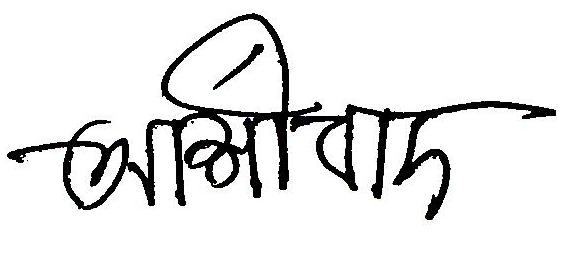 আশীর্বাদ